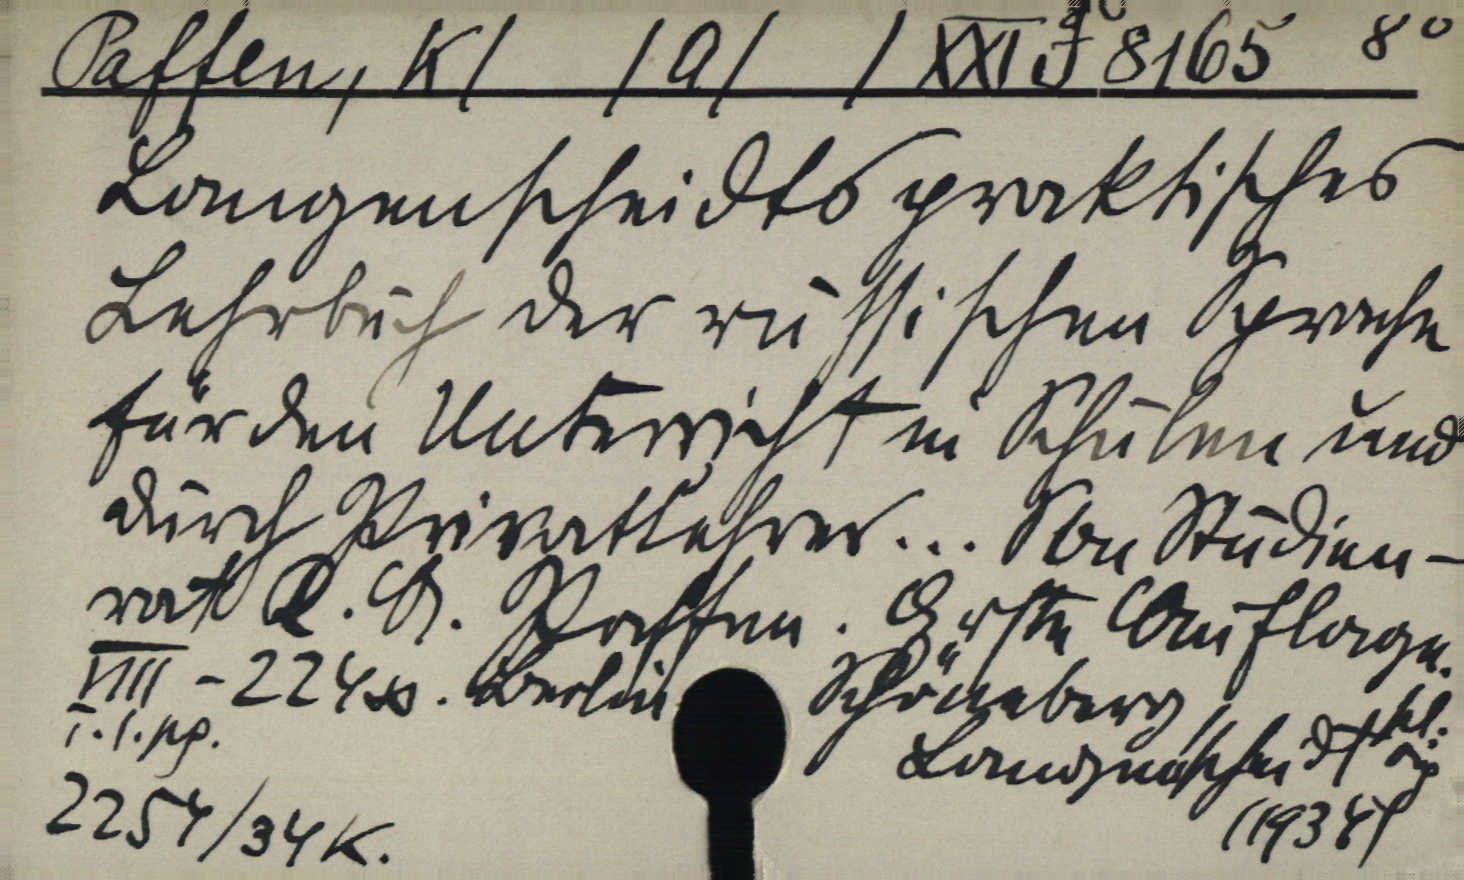 Paffen, K/ /A/ / XXI J 8165 8°
Langenscheidts praktisches
Lehrbuch der russischen Sprache
für den Unterricht in Schulen und
durch Privatlehrer... Von Studien-
rat K. A. Paffen. Erste Auflage.
VIII - 224 s. Berlin Schöneberg,
Langenscheidt
(1934)
2254/34 K.